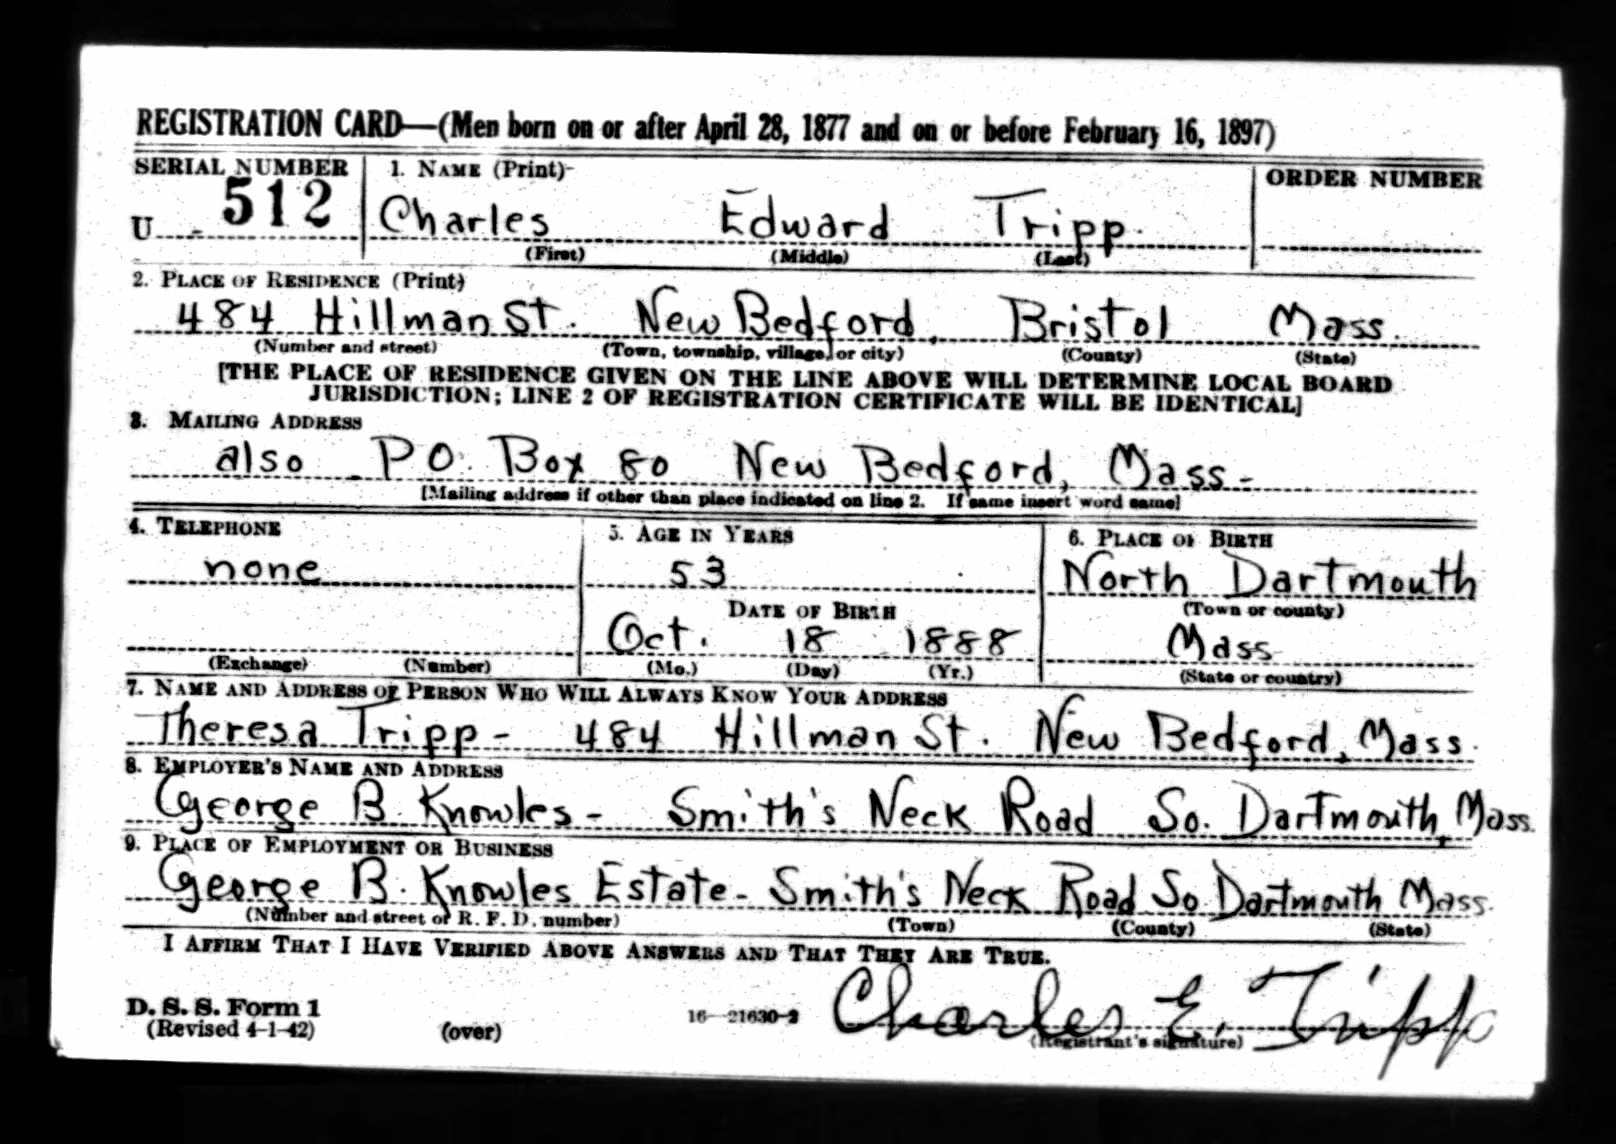 REGISTRATION CARD—(Men born on or after April 28, 1877 and on or before February 16, 1897)
SERIAL NUMBER 1. NAME (Print) ORDER NUMBER
U 512 Charles Edward Tripp
(First) (Middle) (Last)
2. PLACE OF RESIDENCE (Print)
484 Hillman St. New Bedford, Bristol Mass.
(Number and street) (Town, township, village, or city) (County) (State)
[THE PLACE OF RESIDENCE GIVEN ON THE LINE ABOVE WILL DETERMINE LOCAL BOARD
JURISDICTION; LINE 2 OF REGISTRATION CERTIFICATE WILL BE IDENTICAL]
3. MAILING ADDRESS
also P.O. Box 80 New Bedford, Mass-
[Mailing address if other than place indicated on line 2. If same insert word same]
4. TELEPHONE 5. AGE IN YEARS 6. PLACE OF BIRTH
none 53 North Dartmouth
DATE OF BIRTH (Town or county)
Oct. 18 1888 Mass
(Exchange) (Number) (Mo.) (Day) (Yr.) (State or country)
7. NAME AND ADDRESS OF PERSON WHO WILL ALWAYS KNOW YOUR ADDRESS
Theresa Tripp - 484 Hillman St. New Bedford, Mass.
8. EMPLOYER'S NAME AND ADDRESS
George B. Knowles - Smith's Neck Road So. Dartmouth, Mass.
9. PLACE OF EMPLOYMENT OR BUSINESS
George B. Knowles Estate - Smith's Neck Road So. Dartmouth Mass.
(Number and street or R. F. D. number) (Town) (County) (State)
I AFFIRM THAT I HAVE VERIFIED ABOVE ANSWERS AND THAT THEY ARE TRUE.
D. S. S. Form 1
(Revised 4-1-42) (over) 16—21630-2 Charles E. Tripp
(Registrant's signature)